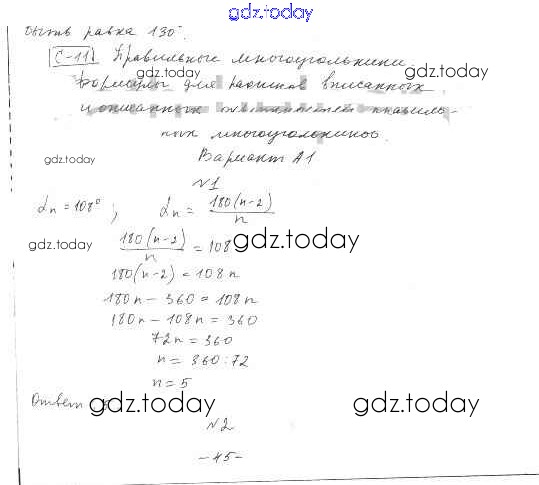 gdz.today
быть равна 130°.
С-11. Правильные многоугольники. gdz.today
Формулы для радиусов вписанных
и описанных правиль-
gdz.today ных многоугольников.
Вариант А1
№1
αn = 108°; αn = 180(n-2)/n
gdz.today 180(n-2)/n = 108 gdz.today
180(n-2) = 108n
180n - 360 = 108n
180n - 108n = 360
72n = 360
n = 360:72
n = 5
Ответ gdz.today gdz.today
№2
-45-